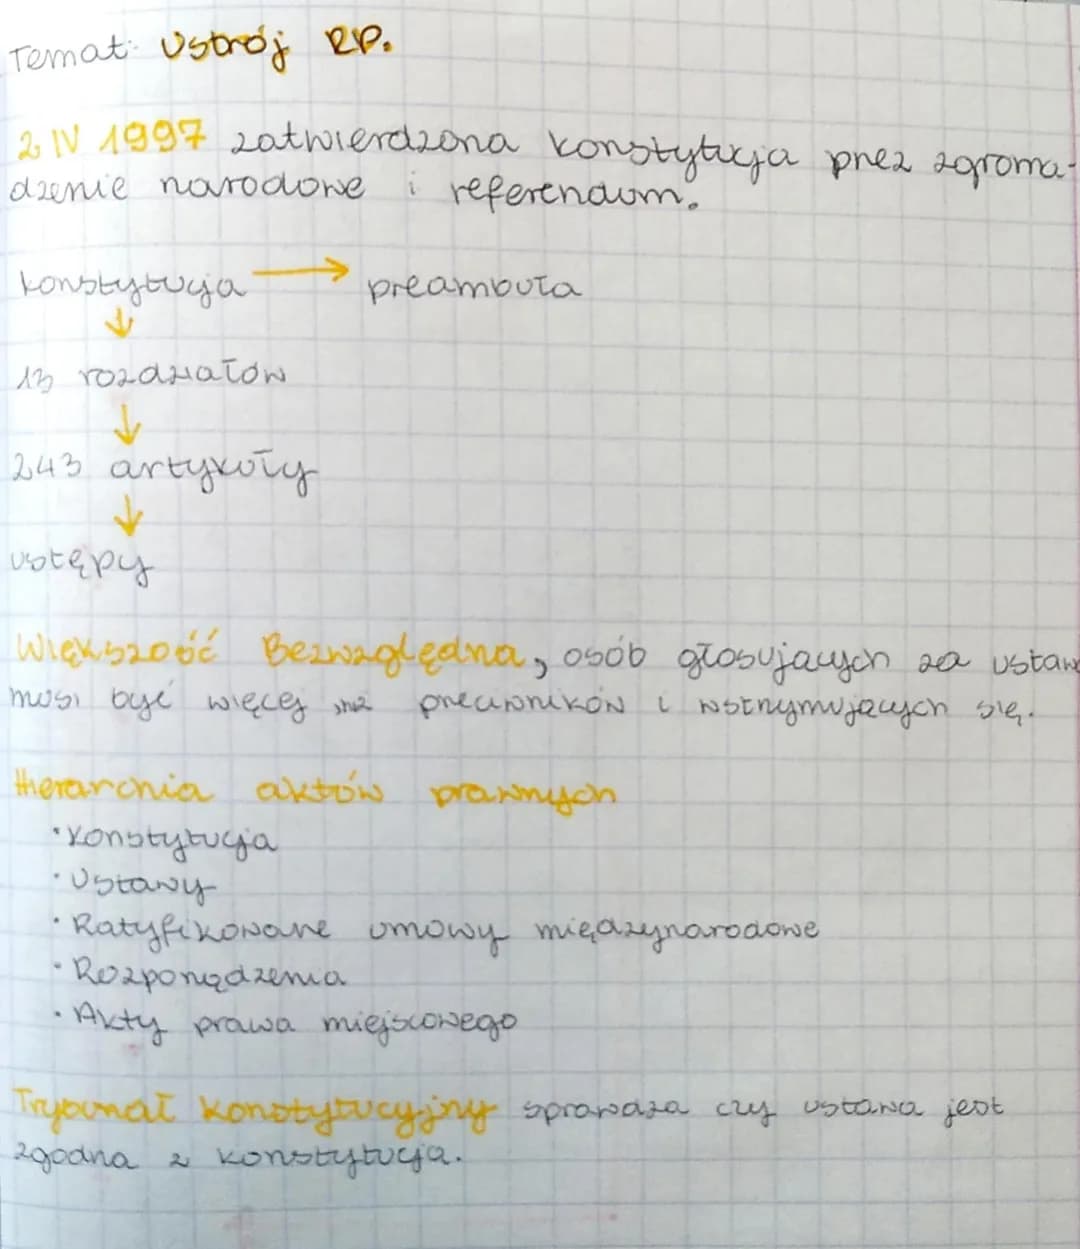 Temat: Ustrój RP.
2 IV 1997 zatwierdzona konstytucja przez zgroma-
dzenie narodowe i referendum.
konstytucja → preambuła
↓
13 rozdziałów
↓
243 artykuły
↓
ustępy
Większość Bezwzględna, osób głosujących za ustaw
musi być więcej niż przeciwników i wstrzymujących się.
Hierarchia aktów prawnych
• Konstytucja
• Ustawy
• Ratyfikowane umowy międzynarodowe
• Rozporządzenia
• Akty prawa miejscowego
Trybunał Konstytucyjny sprawdza czy ustawa jest
zgodna z konstytucja.